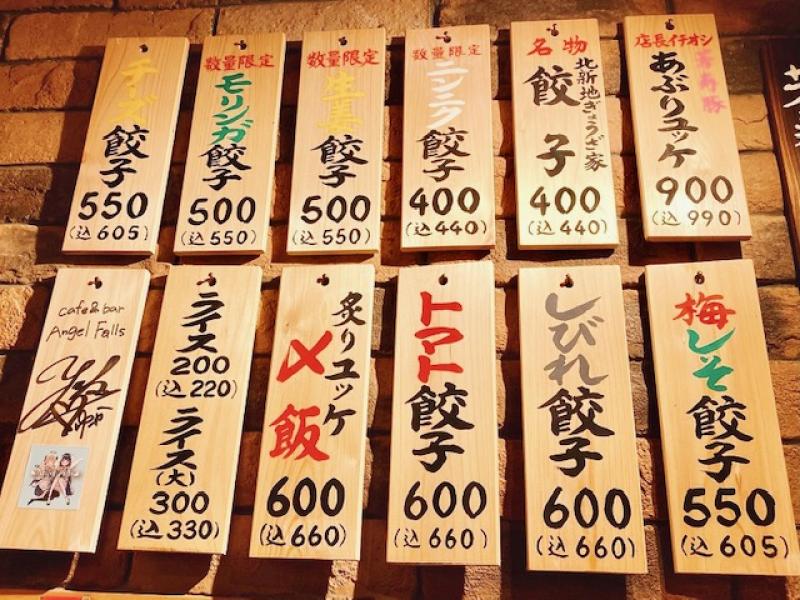 店長イチオシ
あぶりユッケ
900
(込990)
名物
北新地ぎょうざ家
餃子
400
(込440)
数量限定
ニンニク
餃子
400
(込440)
数量限定
生姜
餃子
500
(込550)
数量限定
モリンガ
餃子
500
(込550)
チーズ
餃子
550
(込605)
梅しそ
餃子
550
(込605)
しびれ
餃子
600
(込660)
トマト
餃子
600
(込660)
炙りユッケ
〆飯
600
(込660)
ライス
200
(込220)
ライス
(大)
300
(込330)
cafe&bar
Angel Falls